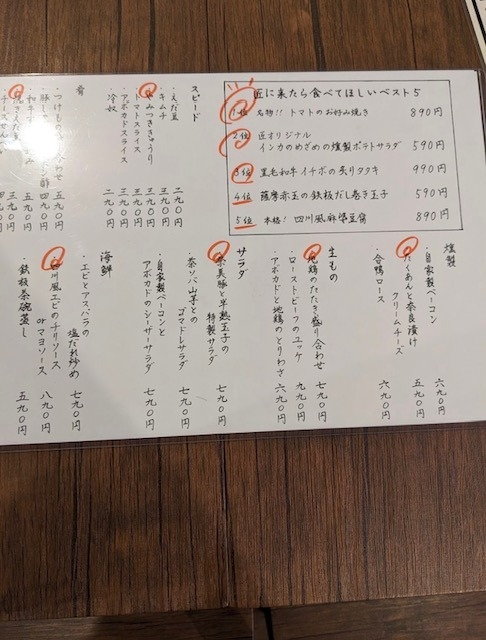 匠に来たら食べてほしいベスト5
1位 名物!! トマトのお好み焼き 890円
2位 匠オリジナル
インカのめざめの燻製ポテトサラダ 590円
3位 黒毛和牛イチボの炙りタタキ 990円
4位 薩摩赤玉の鉄板だし巻き玉子 590円
5位 本格! 四川風麻婆豆腐 890円
スピード
・えだ豆 二九〇円
・キムチ 三九〇円
・みつききゅうり 三九〇円
・トマトスライス 三九〇円
・アボカドスライス 三九〇円
・冷奴 二九〇円
肴
五九〇円
四九〇円
五九〇円
三九〇円
燻製
・自家製ベーコン 六九〇円
・たくあんと奈良漬け
クリームチーズ 五九〇円
・合鴨ロース 六九〇円
生もの
・地鶏のたたき盛り合わせ 七九〇円
・ローストビーフのユッケ 九九〇円
・アボカドと地鶏のとりわさ 六九〇円
サラダ
・奈美豚と半熟玉子の
特製サラダ 七九〇円
ゴマドレサラダ 七九〇円
・自家製ベーコンと
アボカドのシーザーサラダ 七九〇円
海鮮
・エビとアスパラの
塩だれ炒め 七九〇円
・四川風エビのチリソース
orマヨソース 八九〇円
・鉄板茶碗蒸し 五九〇円